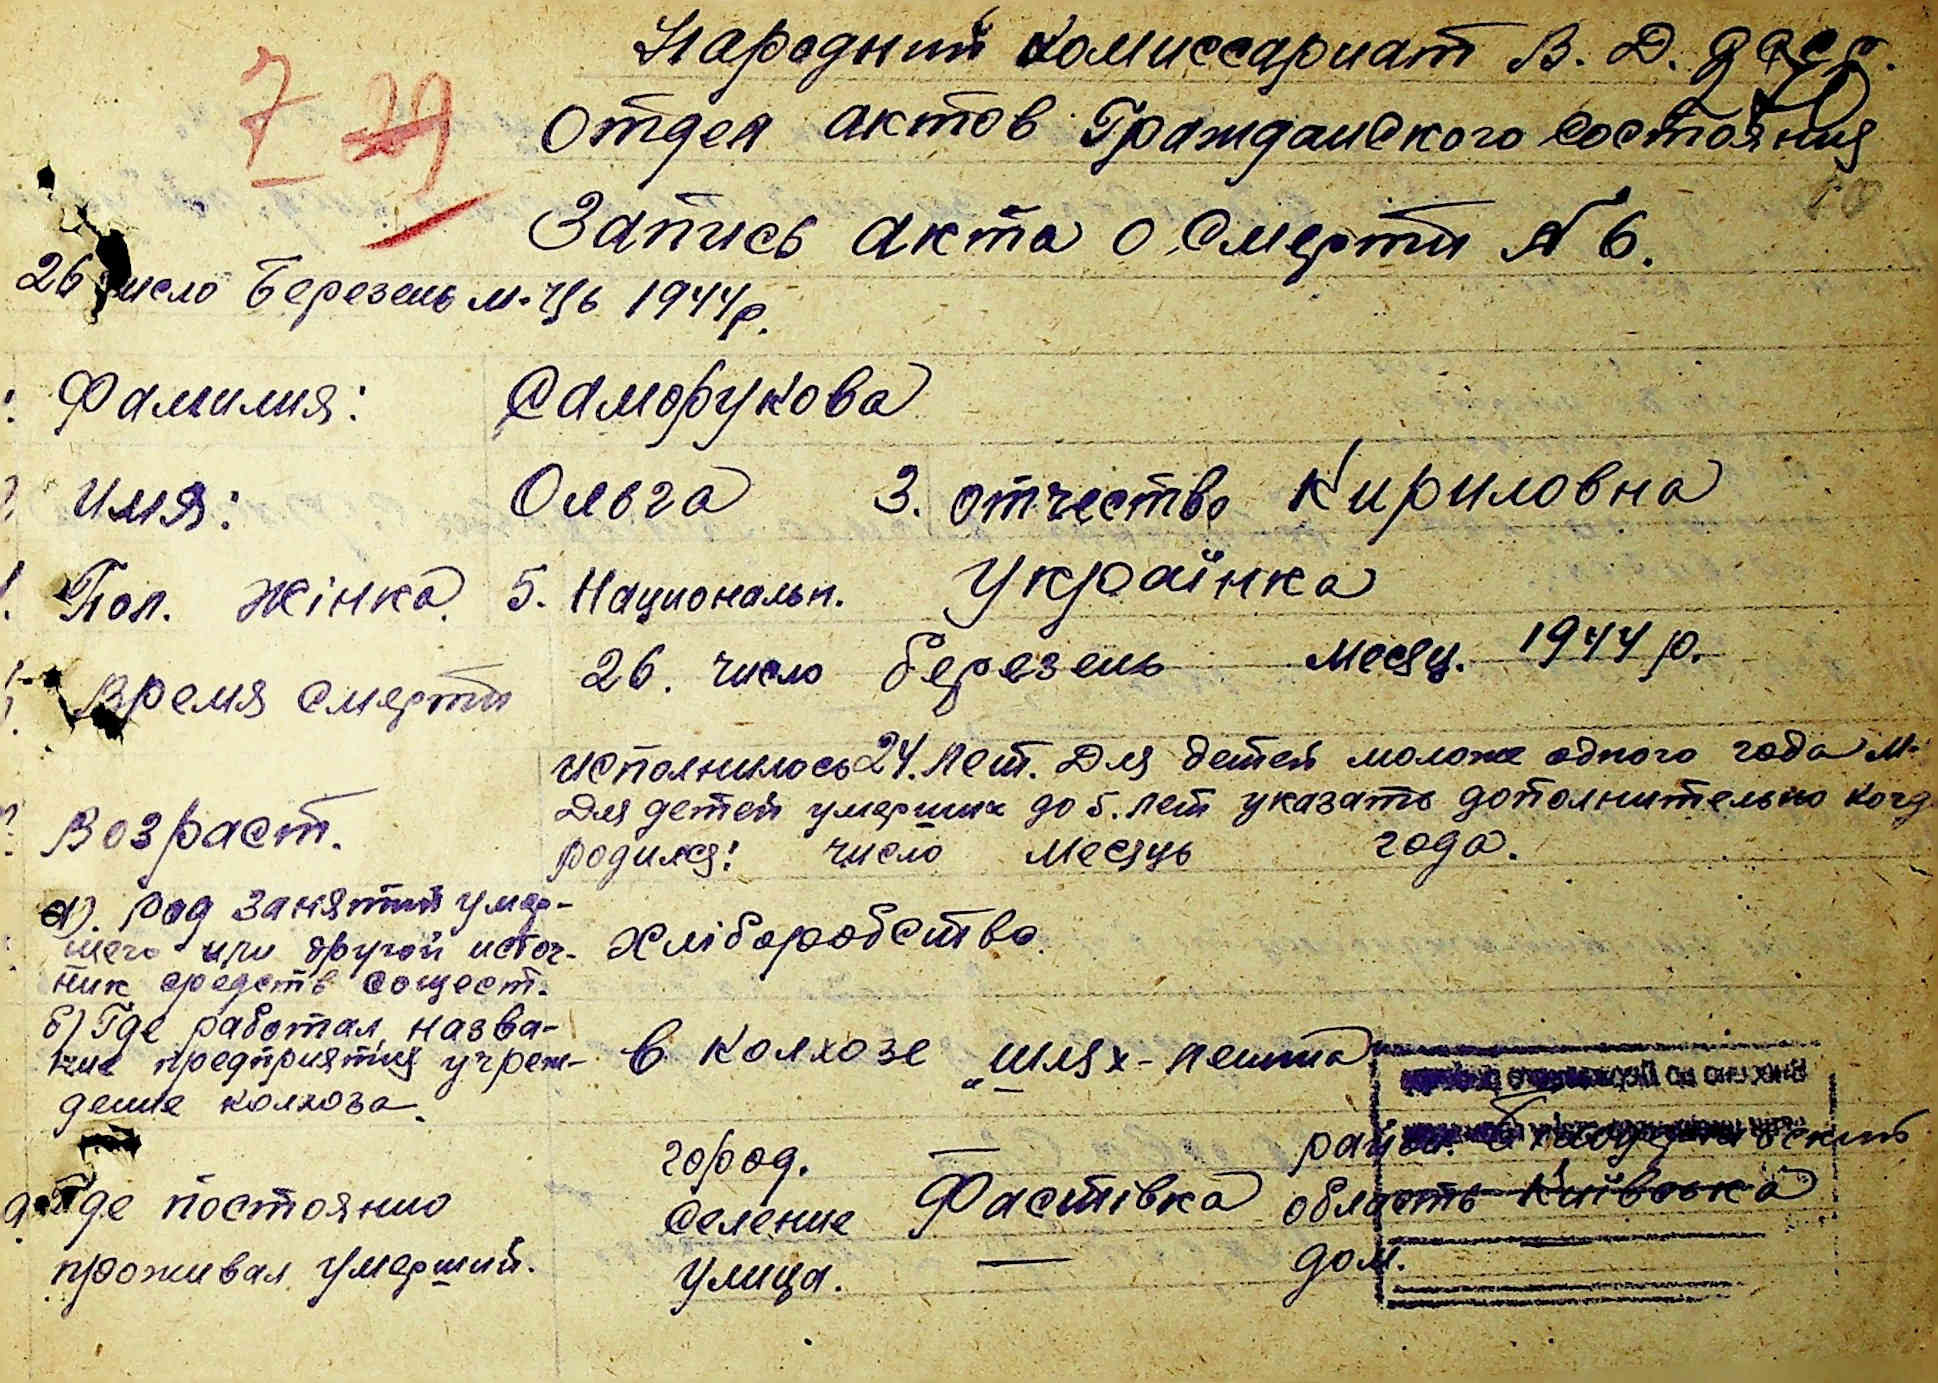 Народний Комиссариат В. Д.
7 29
Отдел актов Гражданского состояния
Запись акта о смерти № 6.
26 число Березень м-ць 1944 р.
Фамилия: Саморукова
Имя: Ольга 3. отчество Кириловна
Пол. Жінка. 5. Национальн. Українка
Время смерти 26. число березень месяц. 1944 р.
исполнилось 24. лет. Для детей моложе одного года м-
Для детей умерших до 5. лет указать дополнительно когд
Возраст. родился: число месяць года.
а). Род занятий умер-
шего или другой источ- хліборобство
ник средств сощест.
б) Где работал, назва-
ние предприятия учреж- в колхозе „шлях-
дение колхоза.
город. — район.
Где постоянно селение Фастівка область Київська
проживал умерший. улица. — дом.